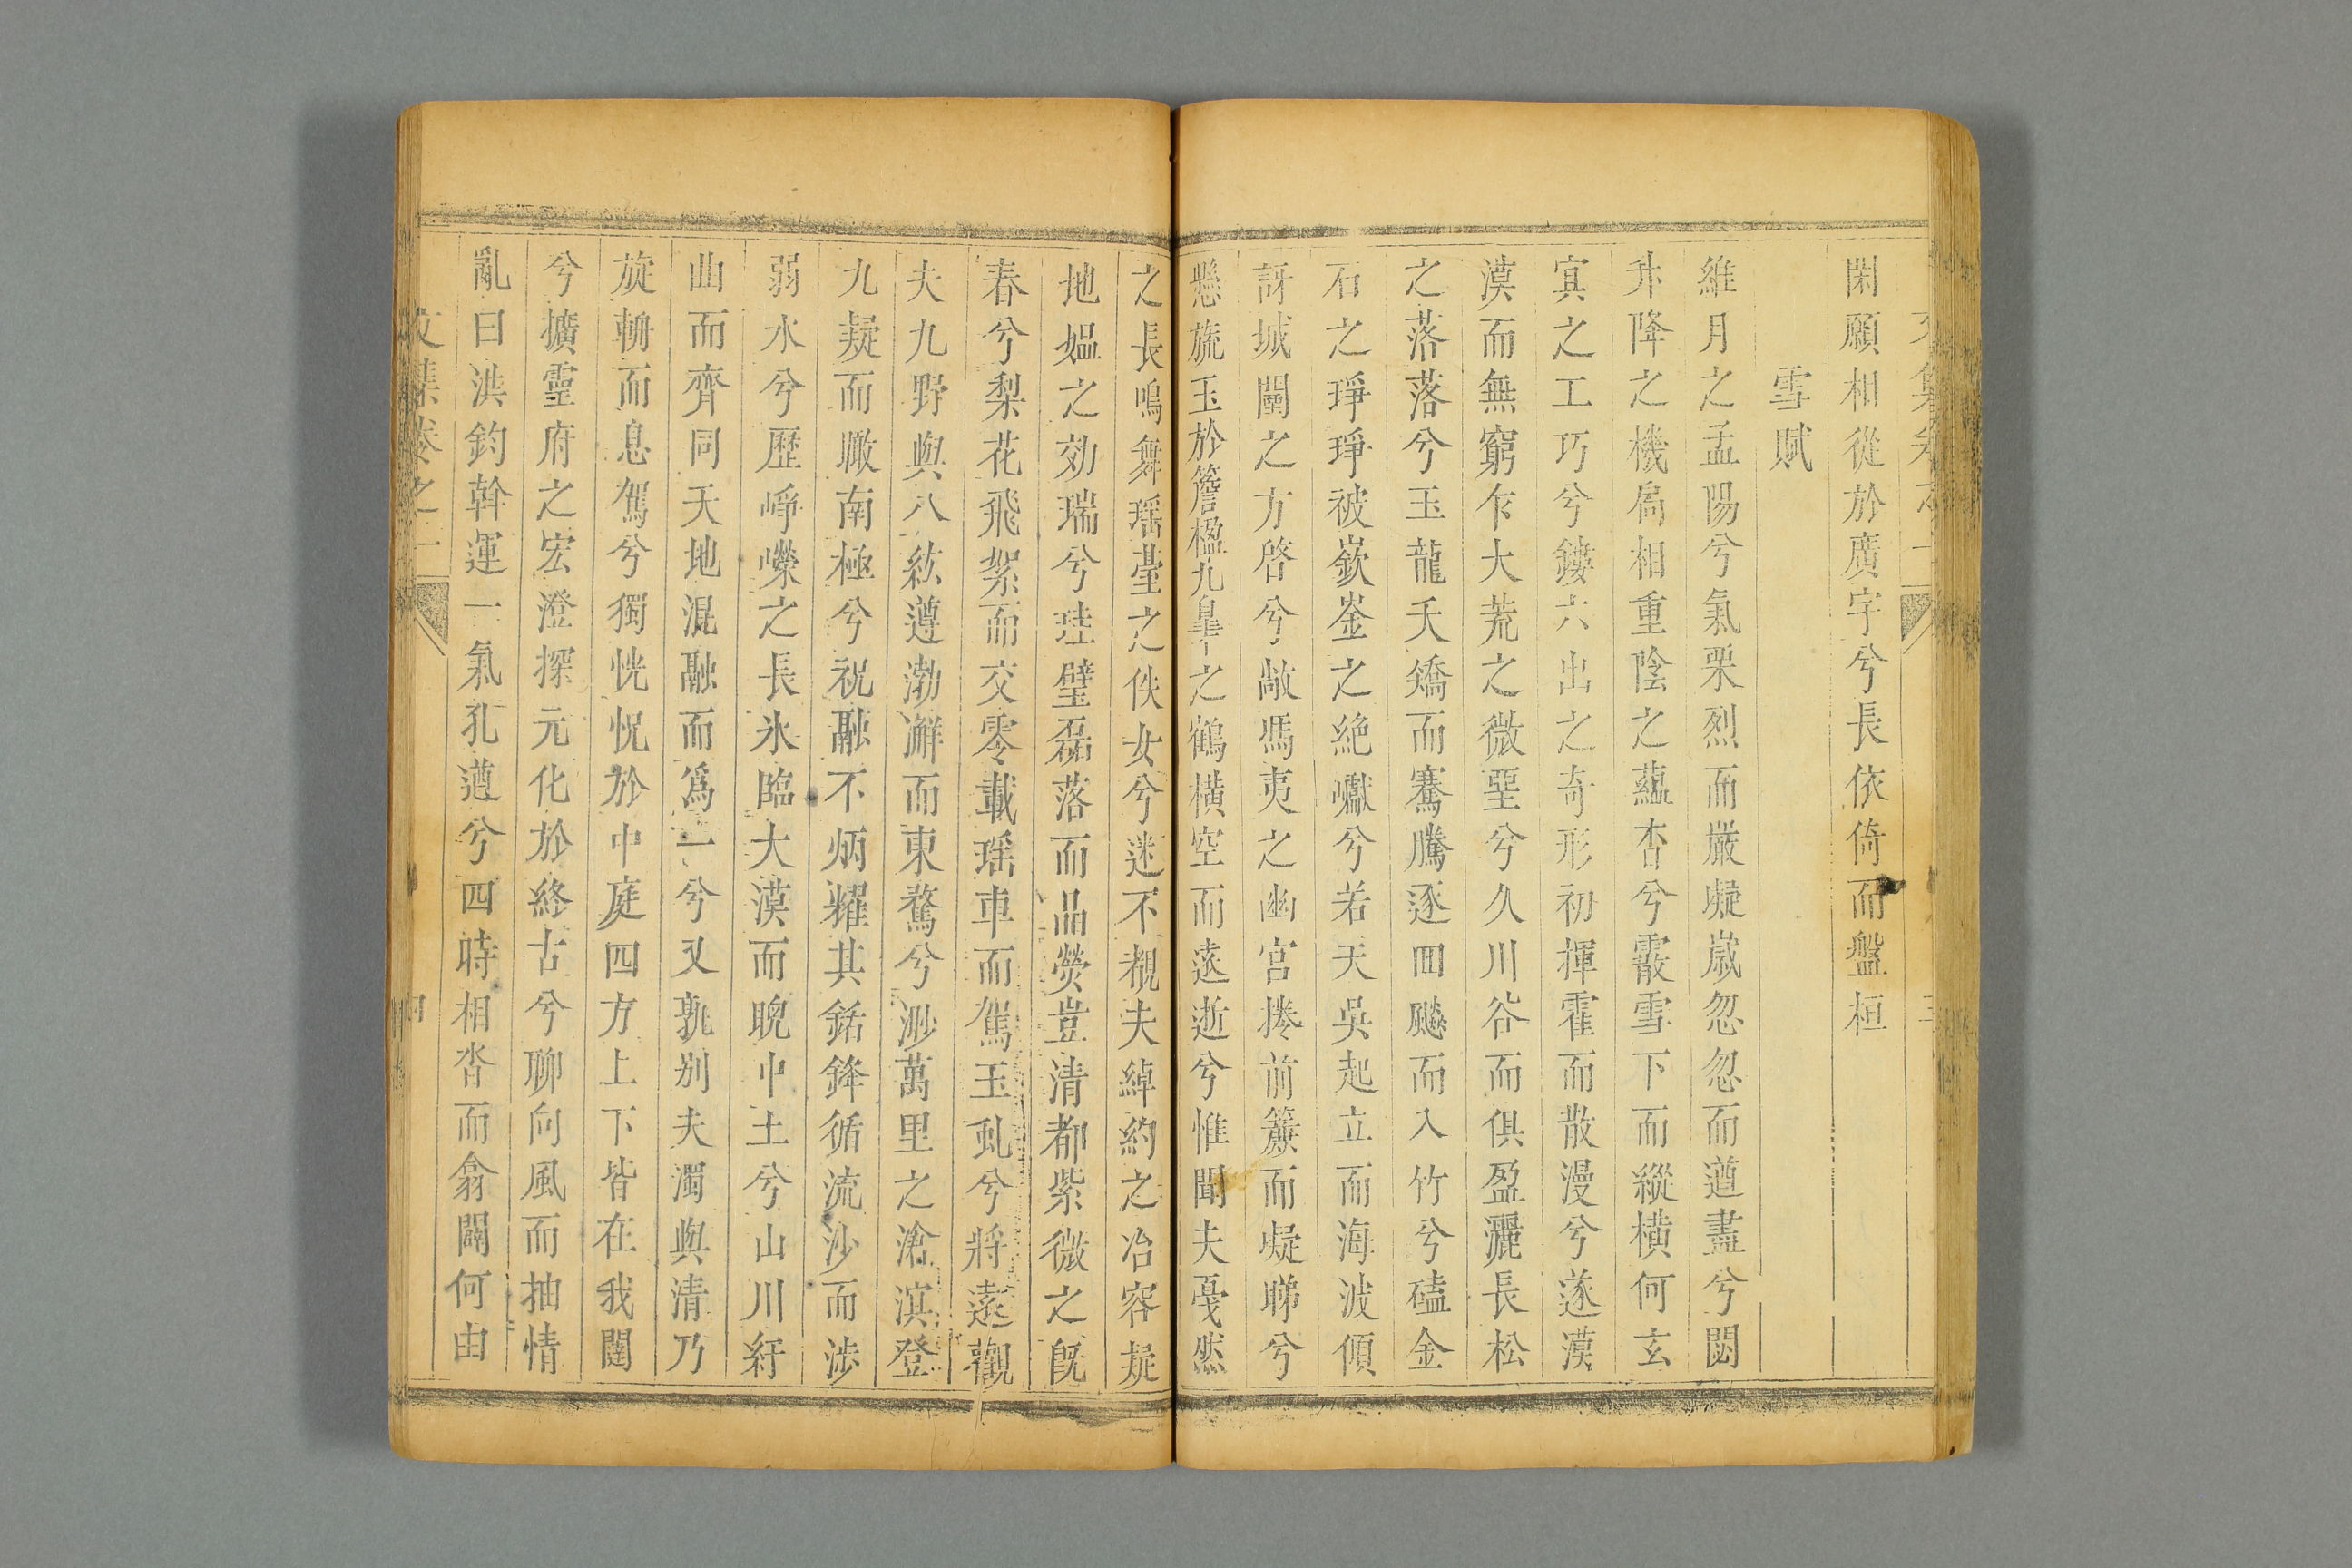 閑願相從於廣宇兮長依倚而盤桓
雪賦
維月之孟陽兮氣栗烈而嚴凝歲忽忽而遒盡兮閼
升降之機扃相重陰之蘊杳兮霰雪下而縱橫何玄
㝠之工巧兮鏤六出之奇形初揮霍而散漫兮遂漠
漠而無窮乍大荒之微堊兮久川谷而俱盈灑長松
之落落兮玉龍夭矯而騫騰逐回飈而入竹兮磕金
石之琤琤被嶔崟之絶巘兮若天吳起立而海波傾
訝城闉之方啓兮敞馮夷之幽宮捲前簾而凝睇兮
懸旒玉於簷楹九臯之鶴橫空而遠逝兮惟聞夫戞然
之長鳴舞瑶臺之佚女兮迷不覩夫綽約之冶容疑
地媼之効瑞兮珪璧磊落而品熒豈清都紫微之旣
春兮梨花飛絮而交零載瑶車而駕玉虬兮將遠觀
夫九野與八紘遵渤澥而東騖兮渺萬里之滄溟登
九疑而瞰南極兮祝融不炳耀其銛鋒循流沙而涉
弱水兮歷崢嶸之長氷臨大漠而睨中土兮山川紆
曲而齊同天地混融而爲一兮又孰别夫濁與清乃
旋輈而息駕兮獨恍怳於中庭四方上下皆在我闥
兮擴靈府之宏澄探元化於終古兮聊向風而抽情
亂曰洪鈞斡運一氣孔遒兮四時相沓而翕闢何由
文集卷之一
四